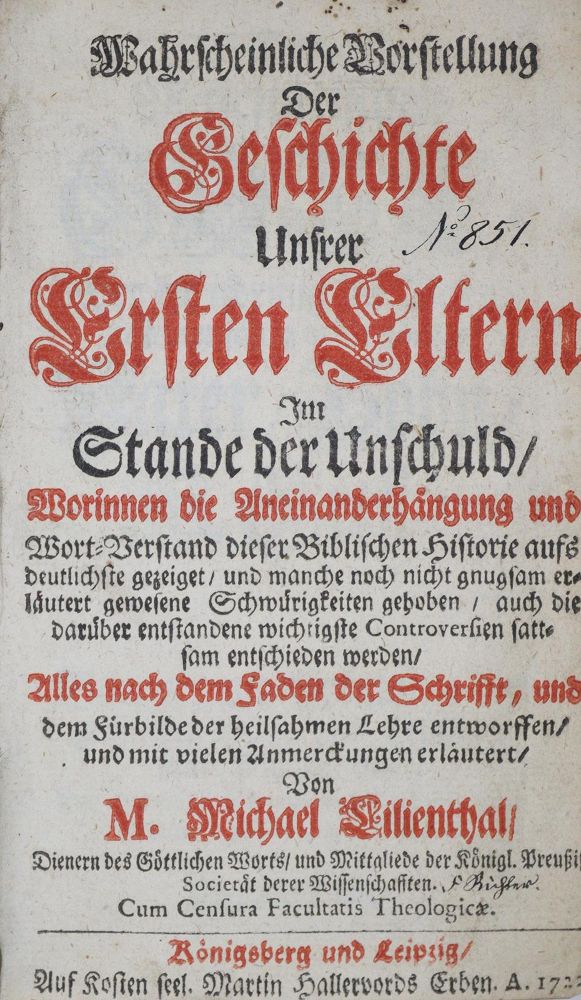 Wahrscheinliche Vorstellung
Der
Geschichte
Unsrer
No 851.
Ersten Eltern
Im
Stande der Unschuld/
Worinnen die Aneinanderhängung und
Wort-Verstand dieser Biblischen Historie aufs
deutlichste gezeiget/ und manche noch nicht gnugsam er-
läutert gewesene Schwürigkeiten gehoben / auch die
darüber entstandene wichtigste Controversien satt-
sam entschieden werden/
Alles nach dem Faden der Schrifft, und
dem Fürbilde der heilsahmen Lehre entworffen/
und mit vielen Anmerckungen erläutert/
Von
M. Michael Lilienthal/
Dienern des Göttlichen Worts/ und Mittgliede der Königl. Preußis
Societät derer Wissenschafften. F Richter.
Cum Censura Facultatis Theologicæ.
Königsberg und Leipzig/
Auf Kosten seel. Martin Hallervords Erben. A. 172